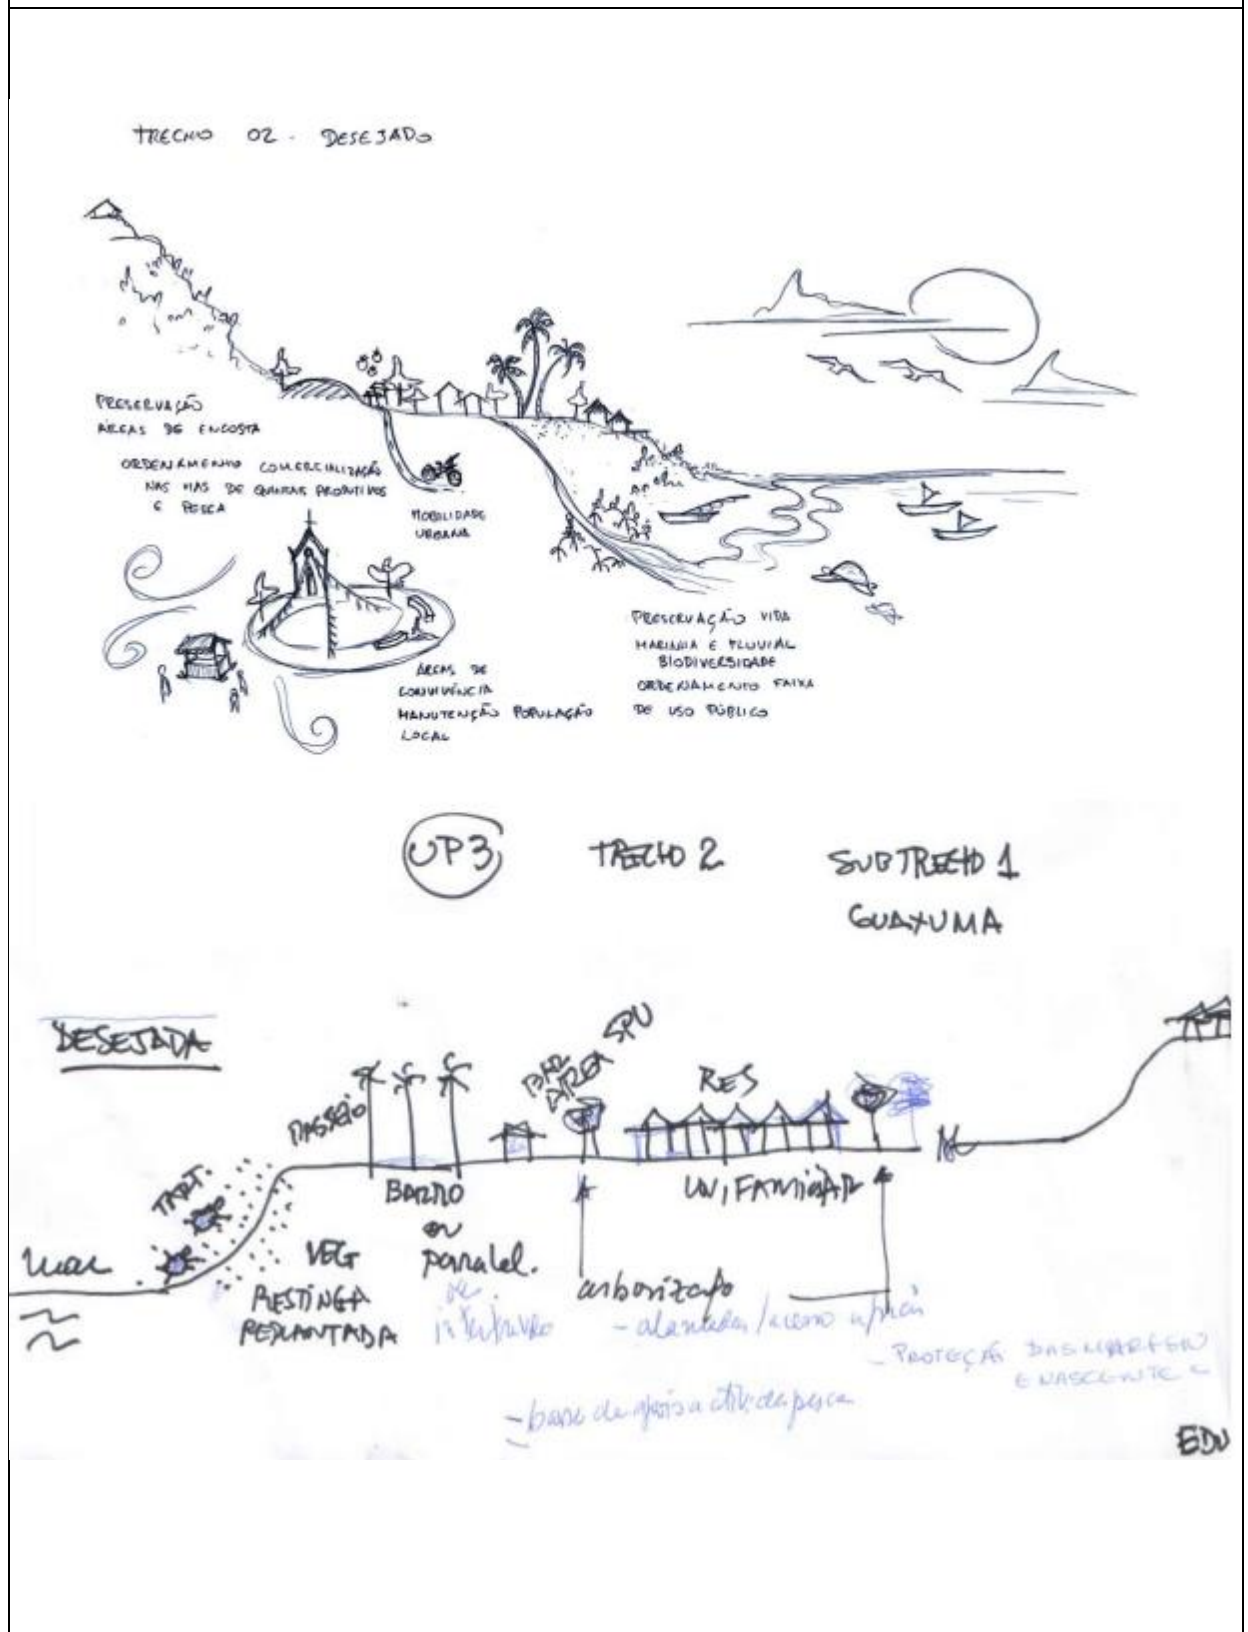 TRECHO 02 - DESEJADO
PRESERVAÇÃO
ÁREAS DE ENCOSTA
ORDENAMENTO COMERCIALIZAÇÃO
NAS DE QUINTAIS PRODUTIVOS
E PESCA
MOBILIDADE
URBANA
ÁREAS DE
CONVIVÊNCIA
MANUTENÇÃO POPULAÇÃO
LOCAL
PRESERVAÇÃO VIDA
MARINHA E FLUVIAL
BIODIVERSIDADE
ORDENAMENTO FAIXA
DE USO PÚBLICO
UP3 TRECHO 2 SUBTRECHO 1
GUAXUMA
DESEJADA
PASSEIO
BAR
AREA SPU
RES
TART.
mar
VEG
RESTINGA
REPLANTADA
BARRO
ou
paralel.
UNIFAMILIAR
arborização
- PROTEÇÃO DAS MARGENS
E NASCENTES
- base de apoio a ativ. de pesca
EDU